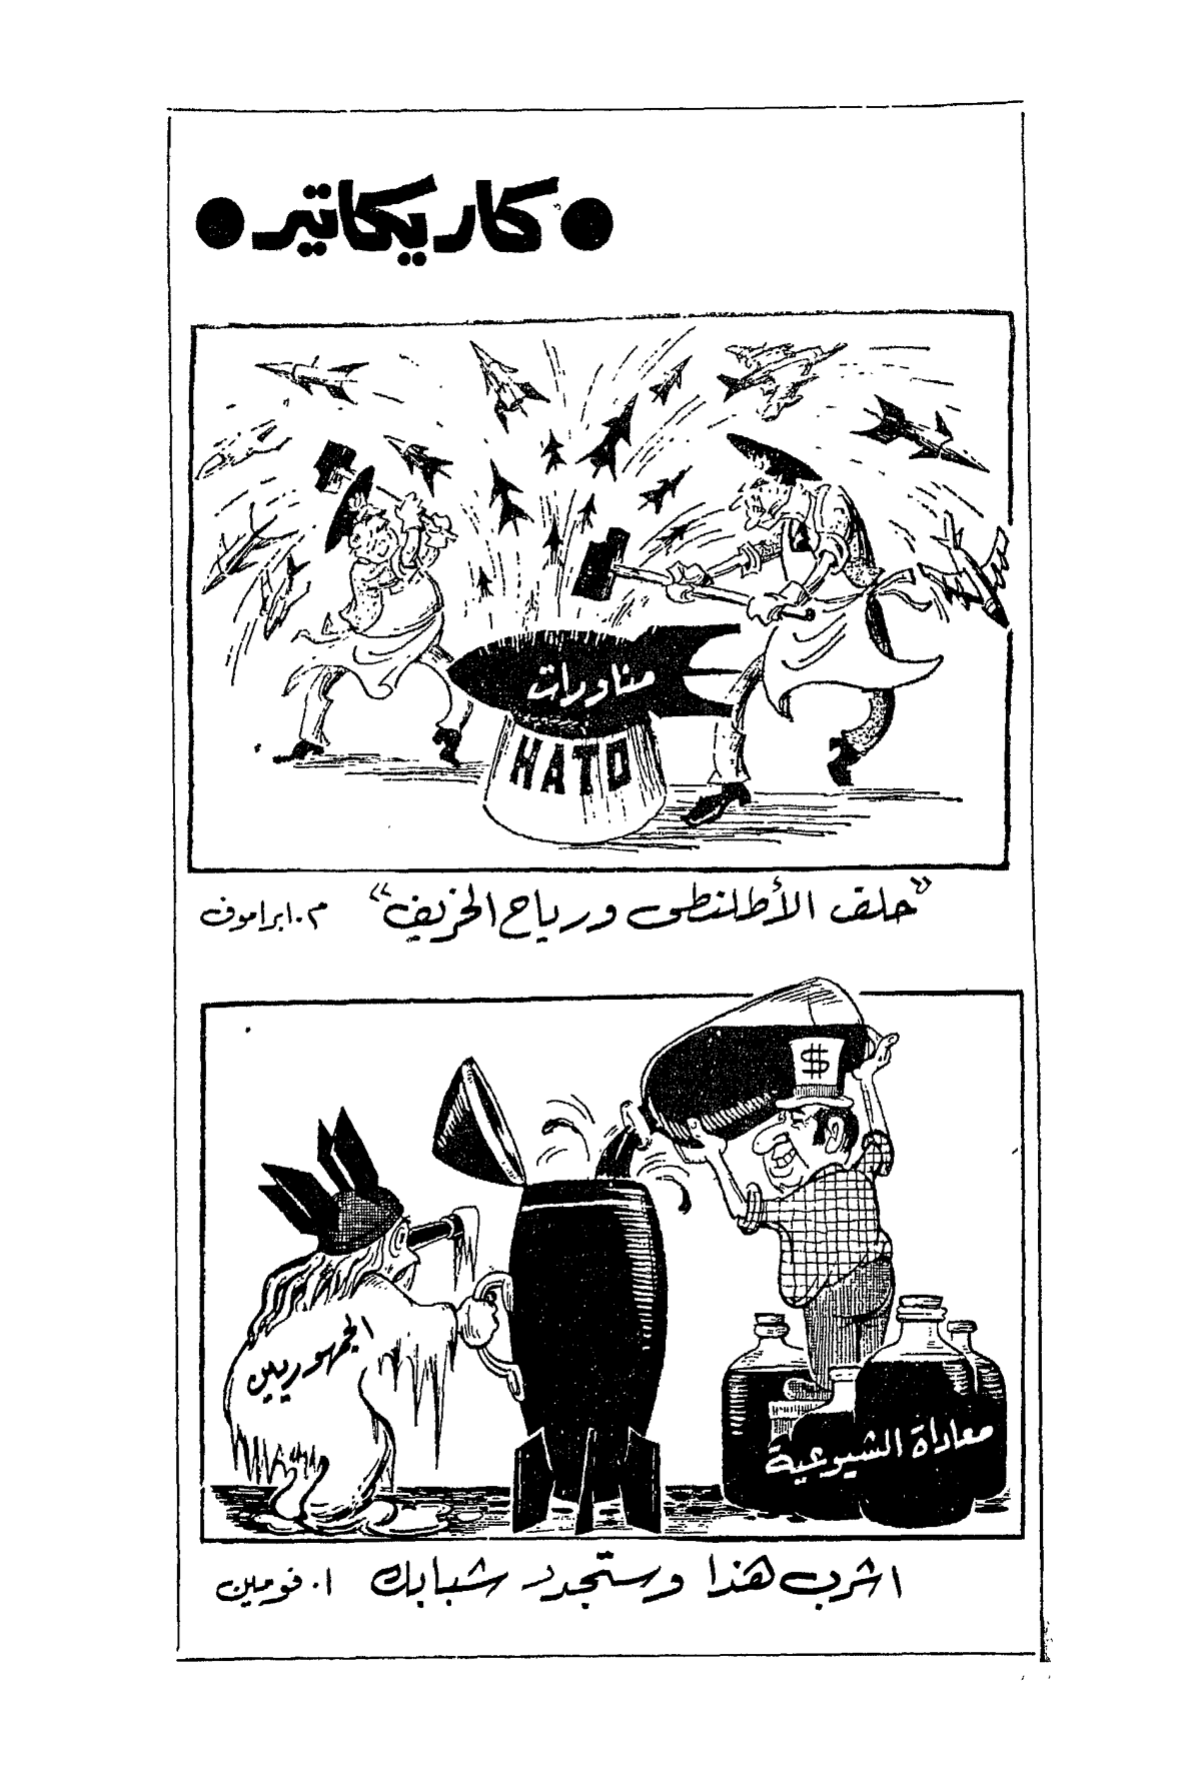 ● كاريكاتير ●
مناورات
HATO
"حلف الأطلنطى ورياح الخريف" م. ابراموف
$
الجمهوريين
معاداة الشيوعية
اشرب هذا وستجدد شبابك ا. فومين